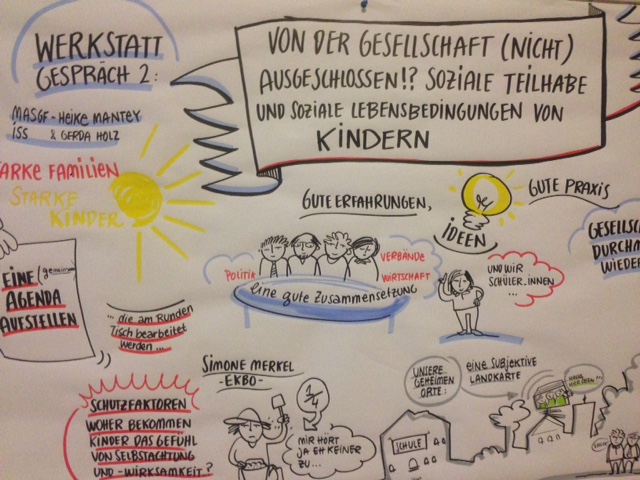 WERKSTATT
GESPRÄCH 2:
MASGF - HEIKE MANTEY
ISS & GERDA HOLZ
VON DER GESELLSCHAFT (NICHT)
AUSGESCHLOSSEN!? SOZIALE TEILHABE
UND SOZIALE LEBENSBEDINGUNGEN VON
KINDERN
ARKE FAMILIEN
STARKE
KINDER
GUTE ERFAHRUNGEN,
IDEEN
GUTE PRAXIS
GESELLSC
DURCHB
WIEDER
EINE (gemeinsame)
AGENDA
AUFSTELLEN
... die am RUNDEN
Tisch bearbeitet
werden ...
POLITIK
VERBÄNDE
WIRTSCHAFT
eine gute Zusammensetzung
UND WIR
SCHÜLER.INNEN
...
SCHUTZFAKTOREN
WOHER BEKOMMEN
KINDER DAS GEFÜHL
VON SELBSTACHTUNG
UND -WIRKSAMKEIT?
SIMONE MERKEL
- EKBO -
1/4
MIR HÖRT
JA EH KEINER
ZU...
UNSERE
GEHEIMEN
ORTE:
EINE SUBJEKTIVE
LANDKARTE
SCHULE